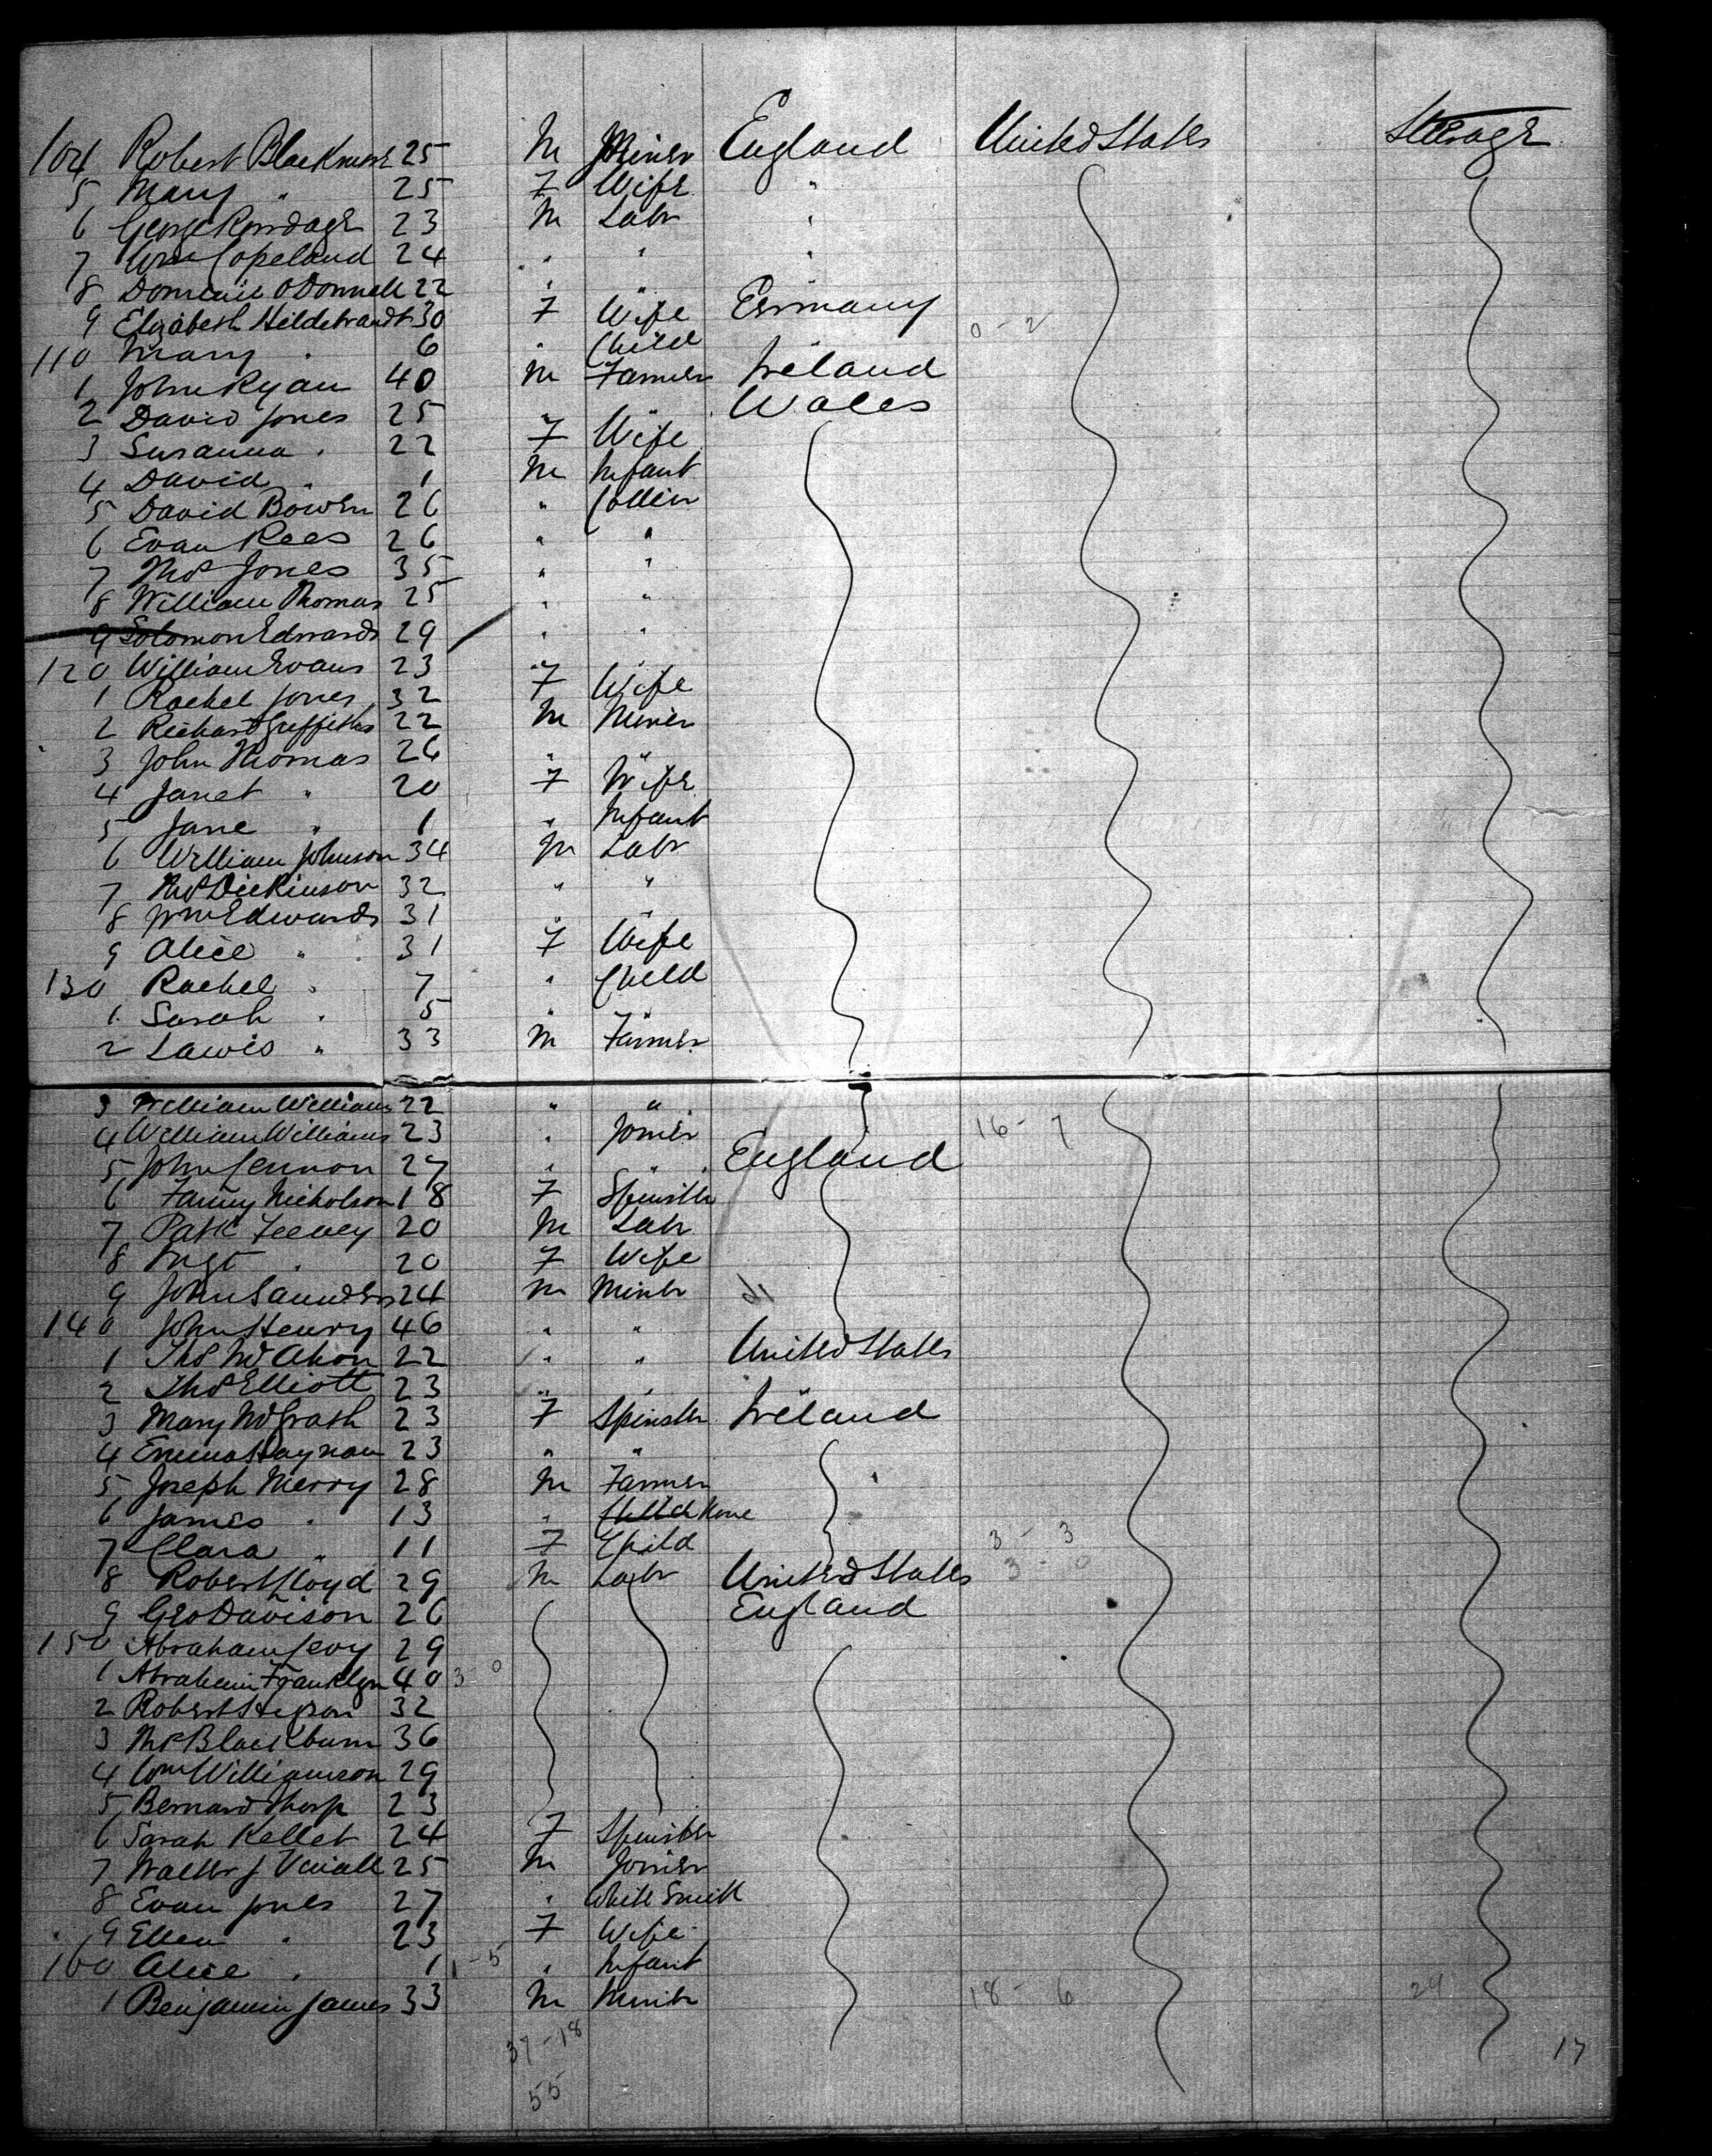 104 Robert Blackmore 25 M Miner England United States Steerage
5 Mary " 25 F Wife "
6 George 23 M Labr "
7 Wm Copeland 24 " " "
8 Dominic O'Donnell 22 " "
9 Elizabeth Hildebrandt 30 F Wife Germany 0-2
110 Mary " 6 " Child
1 John Ryan 40 M Farmer Ireland
2 David Jones 25 " " Wales
3 Susanna " 22 F Wife
4 David " 1 M Infant
5 David Bowen 26 " Collier
6 Evan Rees 26 " "
7 Thos Jones 35 " "
8 William Thomas 25 " "
9 Solomon Edwards 29 " "
120 William Evans 23 " "
1 Rachel Jones 32 F Wife
2 Richard Griffiths 22 M Miner
3 John Thomas 26 " "
4 Janet " 20 F Wife
5 Jane " 1 " Infant
6 William Johnson 34 M Labr
7 Thos Dickinson 32 " "
8 Wm Edwards 31 " "
9 Alice " 31 F Wife
130 Rachel " 7 " Child
1 Sarah " 5 " "
2 Lawis " 33 M Farmer
3 William Williams 22 " "
4 William Williams 23 " Joiner 16-7
5 John Lennon 27 " " England
6 Fanny Nicholson 18 F Spinster
7 Patk Feeney 20 M Labr
8 Mgt " 20 F Wife
9 John Saunders 24 M Miner
140 John Henry 46 " "
1 Thos McAhon 22 " " United States
2 Thos Elliott 23 " "
3 Mary McGrath 23 F Spinster Ireland
4 Emma Haynan 23 " "
5 Joseph Merry 28 M Farmer
6 James " 13 " Child None
7 Clara " 11 F Child 3-3
8 Robert Lloyd 29 M Labr United States 3-0
9 Geo Davison 26 England
150 Abraham Levy 29
1 Abraham Franklyn 40 3-0
2 Robert 32
3 Thos Blackburn 36
4 Wm Williamson 29
5 Bernard Thorp 23
6 Sarah Kellet 24 F Spinster
7 Walter J 25 M Joiner
8 Evan Jones 27 " White Smith
9 Ellen " 23 F Wife
160 Alice " 1 1-5 " Infant
1 Benjamin James 33 M Miner 18-6 24
37-18 17
55